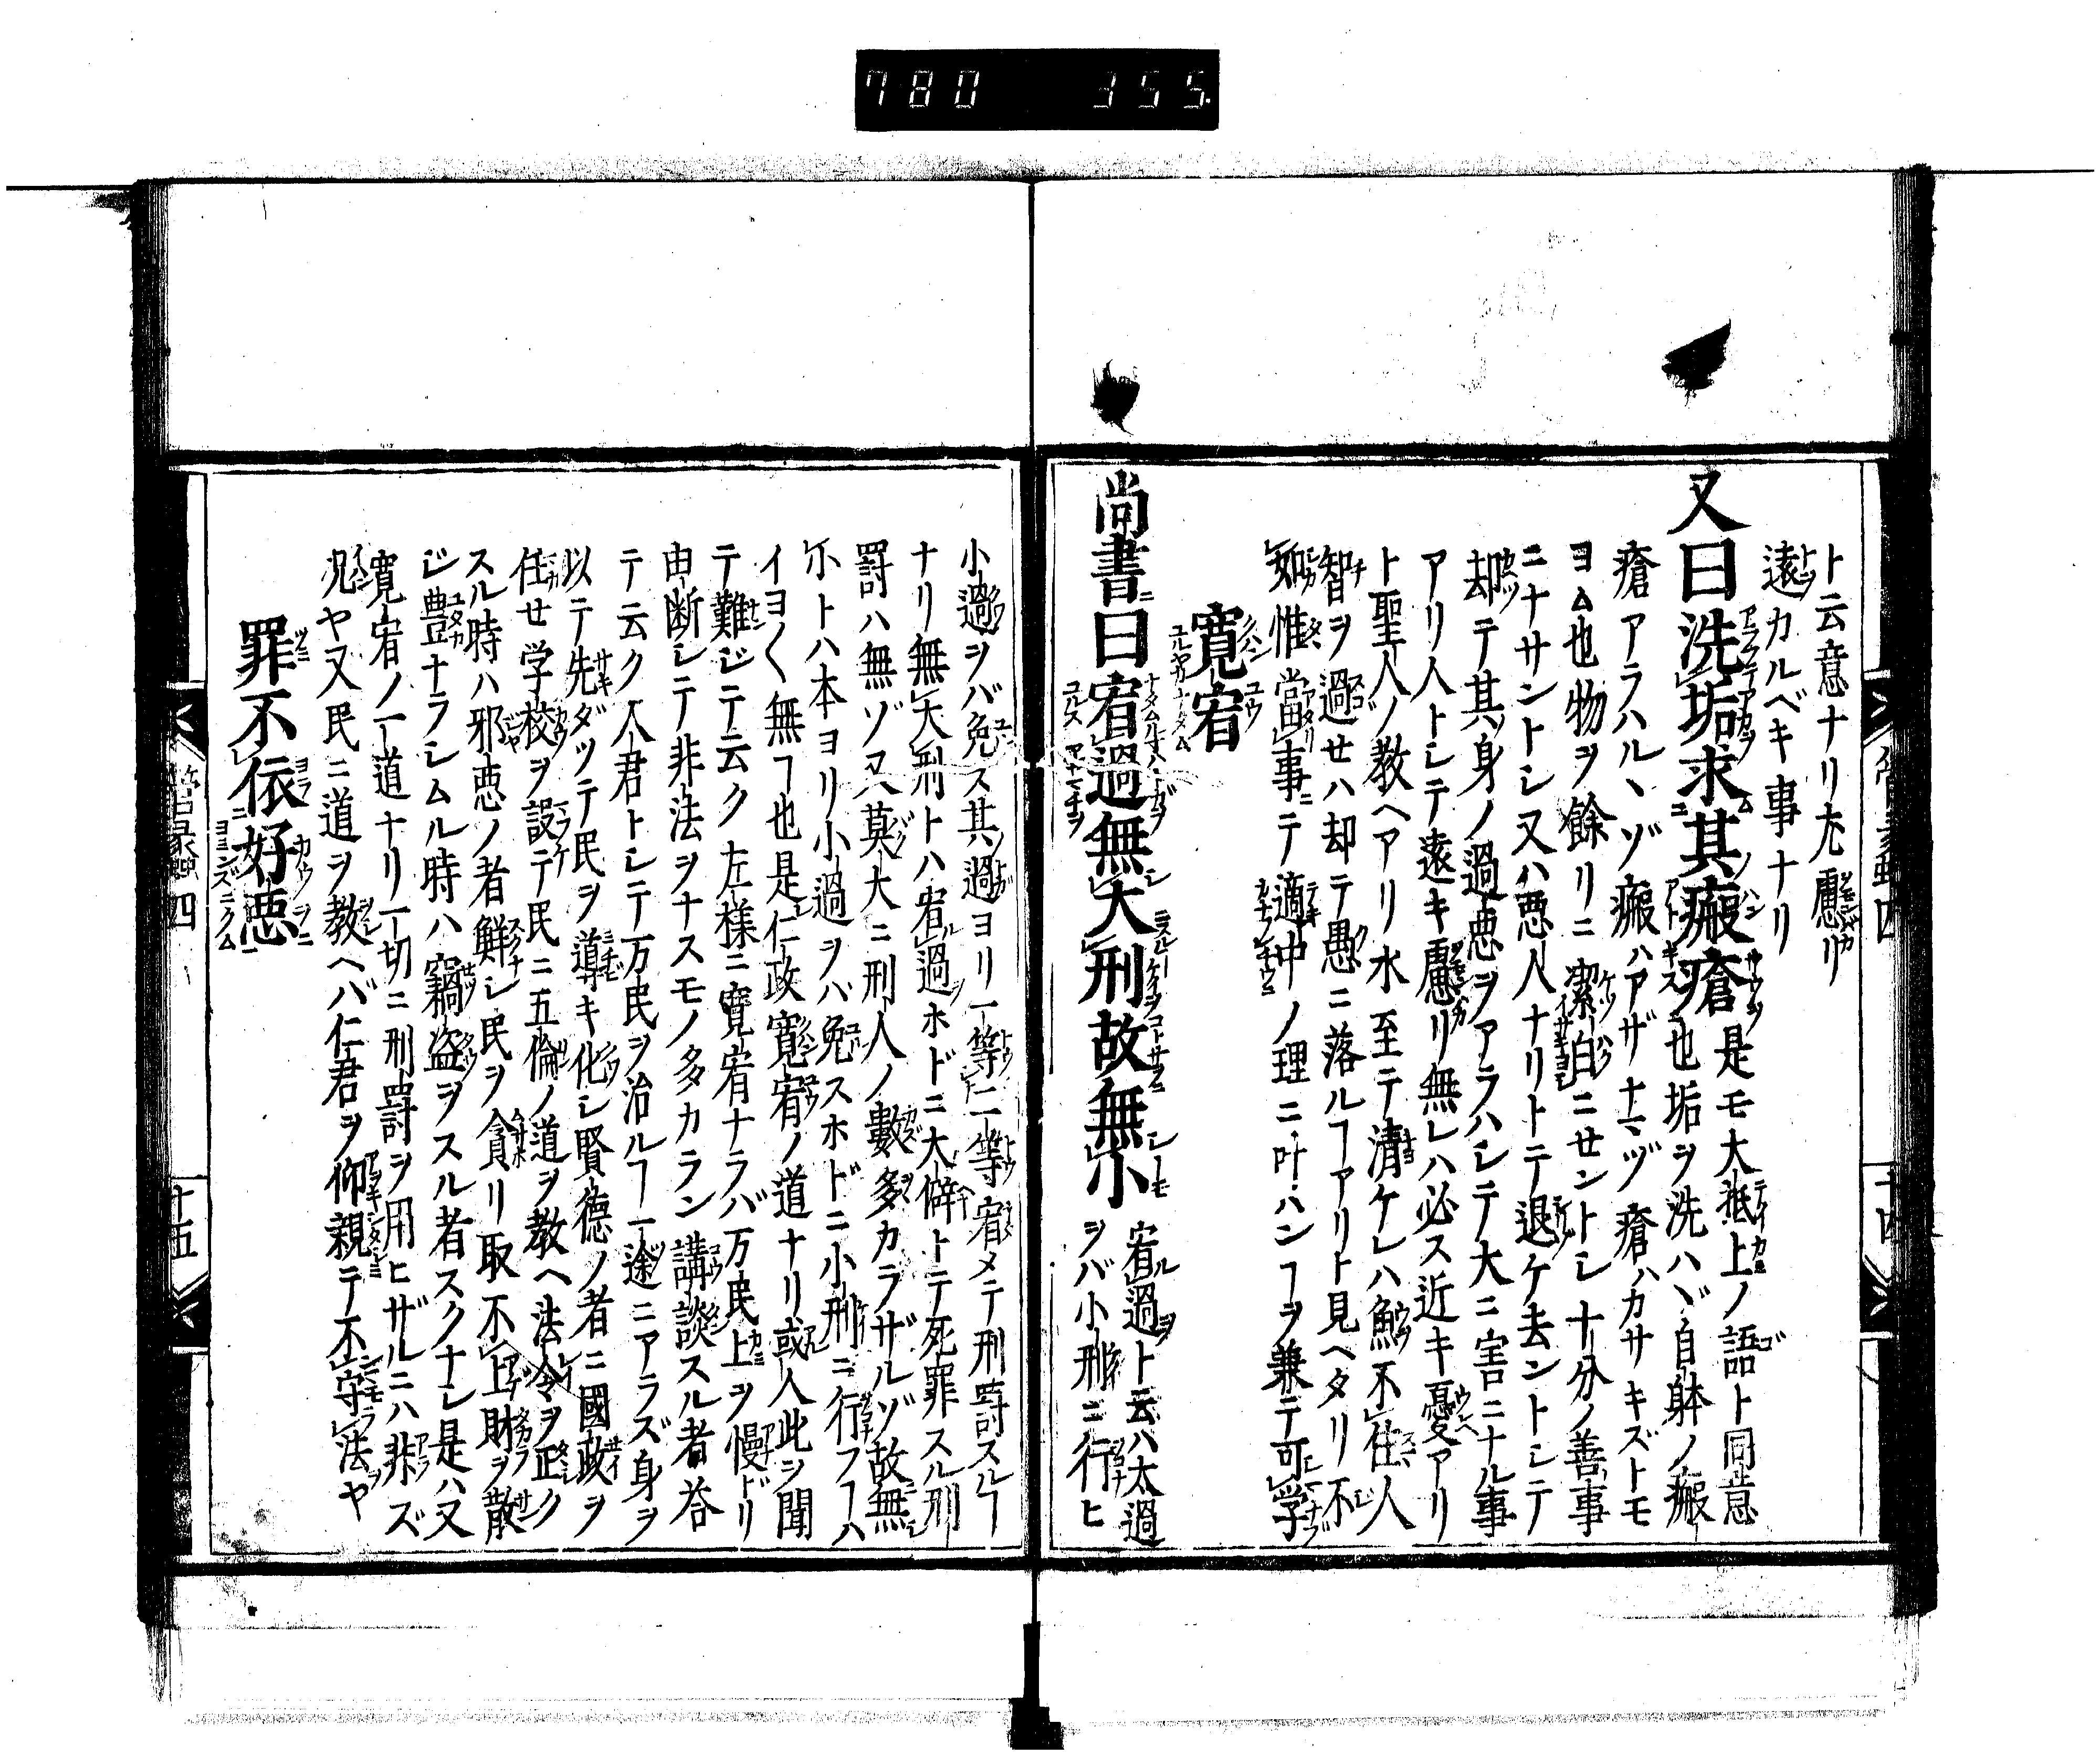 780 355
ト云意ナリ尤慮リ
遠カルベキ事ナリ
又曰洗垢求其瘢瘡是モ大抵上ノ語ト同意
也垢ヲ洗ハヾ自躰ノ瘢
瘡アラハルヽゾ瘢ハアザナマヅ瘡ハカサキズトモ
ヨム也物ヲ餘リニ潔白ニセントシ十分ノ善事
ニナサントシ又ハ悪人ナリトテ退ケ去ントシテ
却テ其身ノ過悪ヲアラハシテ大ニ害ニナル事
アリ人トシテ遠キ慮リ無レハ必ス近キ憂アリ
ト聖人ノ教ヘアリ水至テ清ケレハ魚不住人
智ヲ過セハ却テ愚ニ落ルヿアリト見ヘタリ不
如惟當事ニテ適中ノ理ニ叶ハンヿヲ兼テ可学
寛宥
尚書曰宥過無大刑故無小宥過ト云ハ太過
ヲバ小刑ニ行ヒ
小過ヲバ免ス其過ヨリ一等二等宥メテ刑罰スルヿ
ナリ無大刑トハ宥過ホドニ大僻トテ死罪スル刑
罰ハ無ゾ又莫大ニ刑人ノ數多カラザルゾ故無
小トハ本ヨリ小過ヲバ免スホドニ小刑ニ行フヿハ
イヨ〱無ヿ也是仁政寛宥ノ道ナリ或人此ヲ聞
テ難ジテ云ク左様ニ寛宥ナラバ万民上ヲ慢ドリ
由断シテ非法ヲナスモノ多カラン講談スル者荅
テ云ク人君トシテ万民ヲ治ルヿ一途ニアラズ身ヲ
以テ先ダツテ民ヲ導キ化シ賢徳ノ者ニ國政ヲ
任せ学校ヲ設テ民ニ五倫ノ道ヲ教ヘ法令ヲ正ク
スル時ハ邪悪ノ者鮮シ民ヲ貪リ取不上財ヲ散
ジ豊ナラシムル時ハ竊盗ヲスル者スクナシ是ハ又
寛宥ノ一道ナリ一切ニ刑罰ヲ用ヒザルニハ非ズ
况ヤ又民ニ道ヲ教ヘバ仁君ヲ仰親テ不守法ヤ
罪不依好悪
四
十五